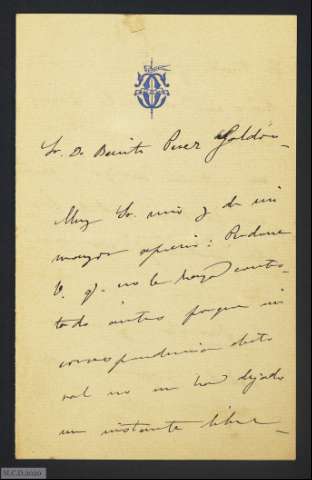 Sr. D. Benito Perez Galdós
Muy Sr. mio y de mi
mayor aprecio: Perdone
V. q. no le haya contes-
tado antes porque mi
correspondencia electo
ral no me ha dejado
un instante libre
M.C.D.2020